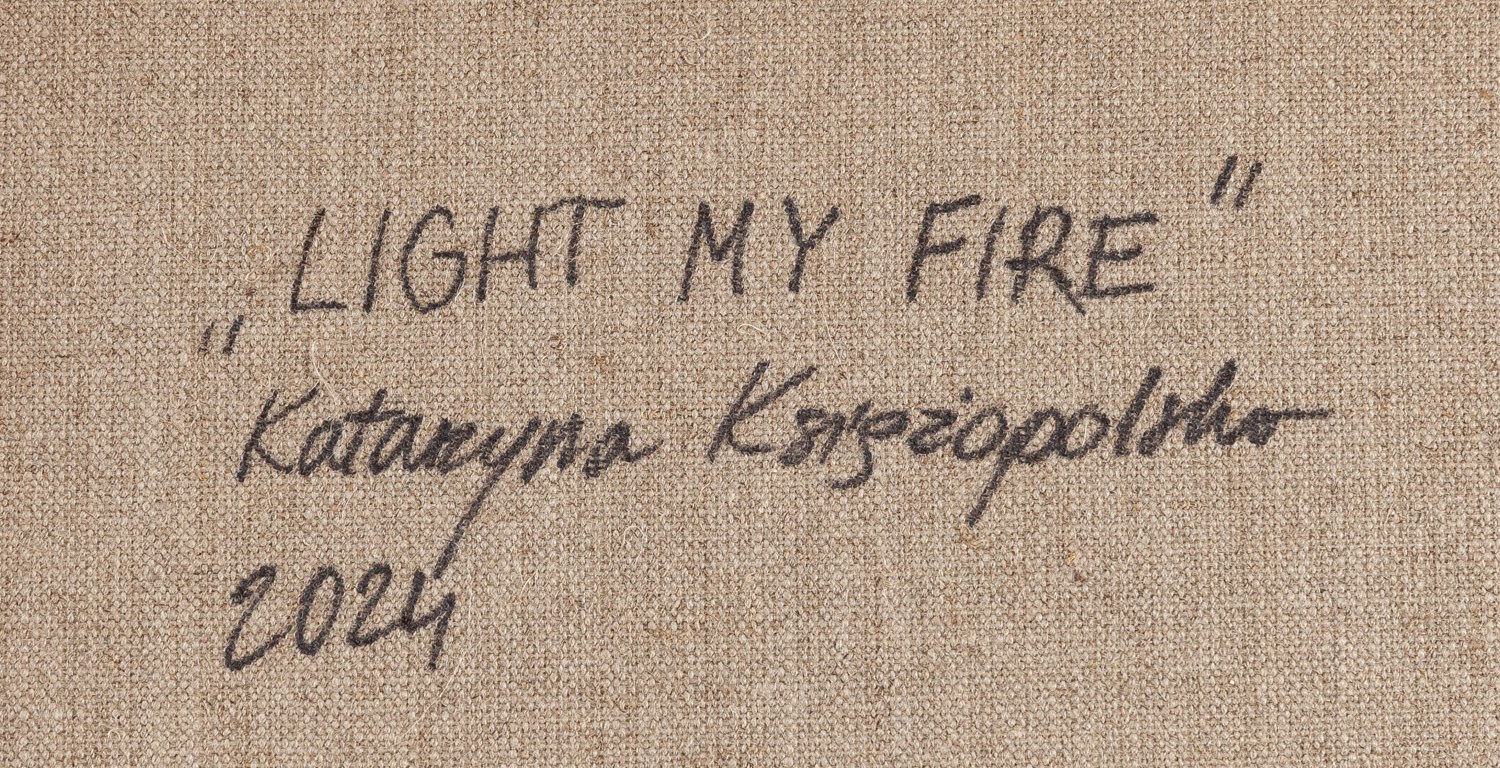 „LIGHT MY FIRE"
Katarzyna Księżopolska
2024